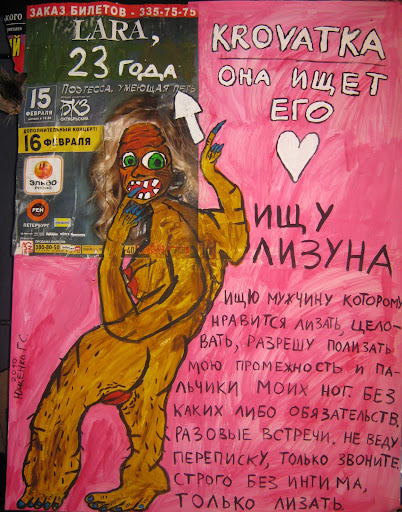 ЗАКАЗ БИЛЕТОВ - 335-75-75
LARA,
23 ГОДА
ПОЭТЕССА, УМЕЮЩАЯ ПЕТЬ
15
ФЕВРАЛЯ
БКЗ
ОКТЯБРЬСКИЙ
ДОПОЛНИТЕЛЬНЫЙ КОНЦЕРТ!
16 ФЕВРАЛЯ
РЕН
ПЕТЕРБУРГ
KROVATKA
ОНА ИЩЕТ
ЕГО
ИЩУ
ЛИЗУНА
ИЩЮ МУЖЧИНУ КОТОРОМУ
НРАВИТСЯ ЛИЗАТЬ, ЦЕЛО-
ВАТЬ, РАЗРЕШУ ПОЛИЗАТЬ
МОЮ ПРОМЕЖНОСТЬ И ПА-
ЛЬЧИКИ МОИХ НОГ. БЕЗ
КАКИХ ЛИБО ОБЯЗАТЕЛЬСТВ.
РАЗОВЫЕ ВСТРЕЧИ. НЕ ВЕДУ
ПЕРЕПИСКУ, ТОЛЬКО ЗВОНИТЕ.
СТРОГО БЕЗ ИНТИМА,
ТОЛЬКО ЛИЗАТЬ.
2010